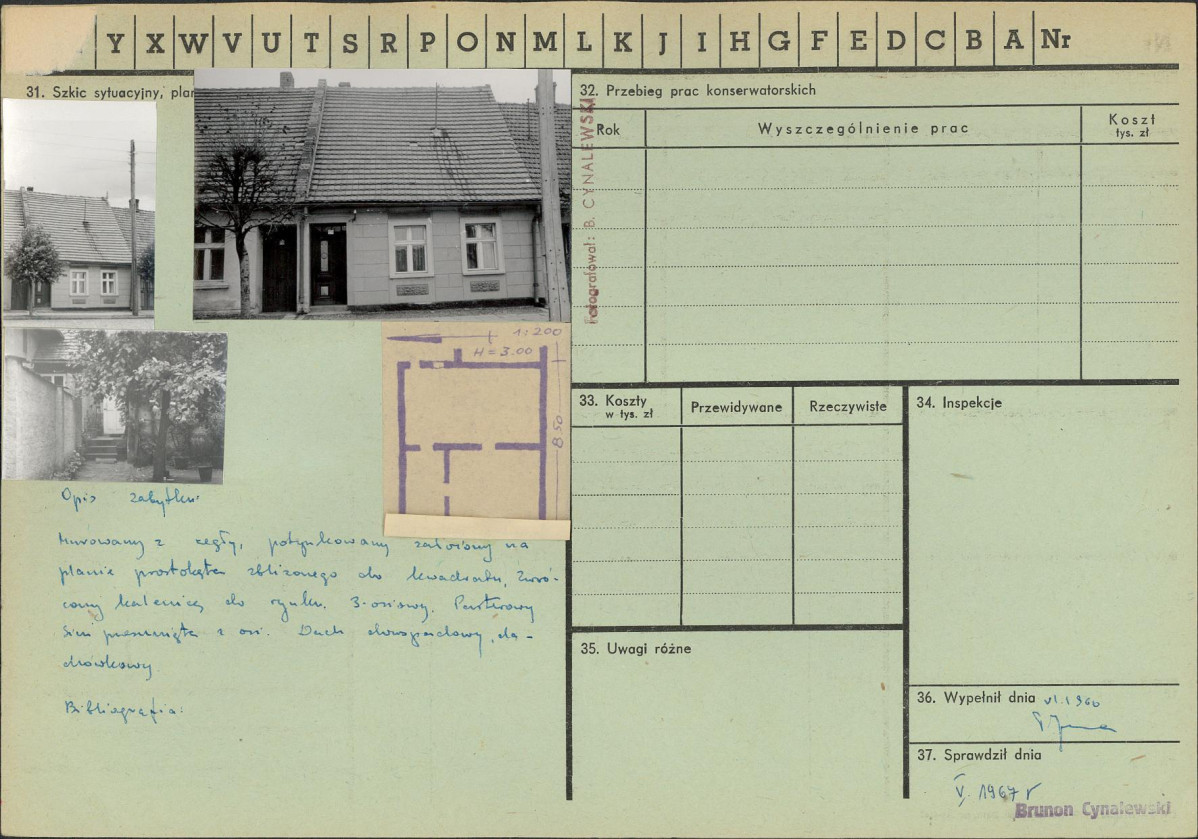 Y X W V U T S R P O N M L K J I H G F E D C B A Nr
31. Szkic sytuacyjny, plan
1:200
H = 3.00
8.50
Opis zabytku:
Murowany z cegły, potynkowany założony na
planie prostokąta zbliżonego do kwadratu, Zwró-
cony kalenicą do rynku. 3-osiowy. Parterowy
Sień przesunięta z osi. Dach dwuspadowy, da-
chówkowy.
Bibliografia:
32. Przebieg prac konserwatorskich
Rok
Wyszczególnienie prac
Koszt
tys. zł
Fotografował: B. CYNALEWSKI
33. Koszty
w tys. zł
Przewidywane
Rzeczywiste
34. Inspekcje
35. Uwagi różne
36. Wypełnił dnia VI.1960
37. Sprawdził dnia
V. 1967 r
Brunon Cynalewski